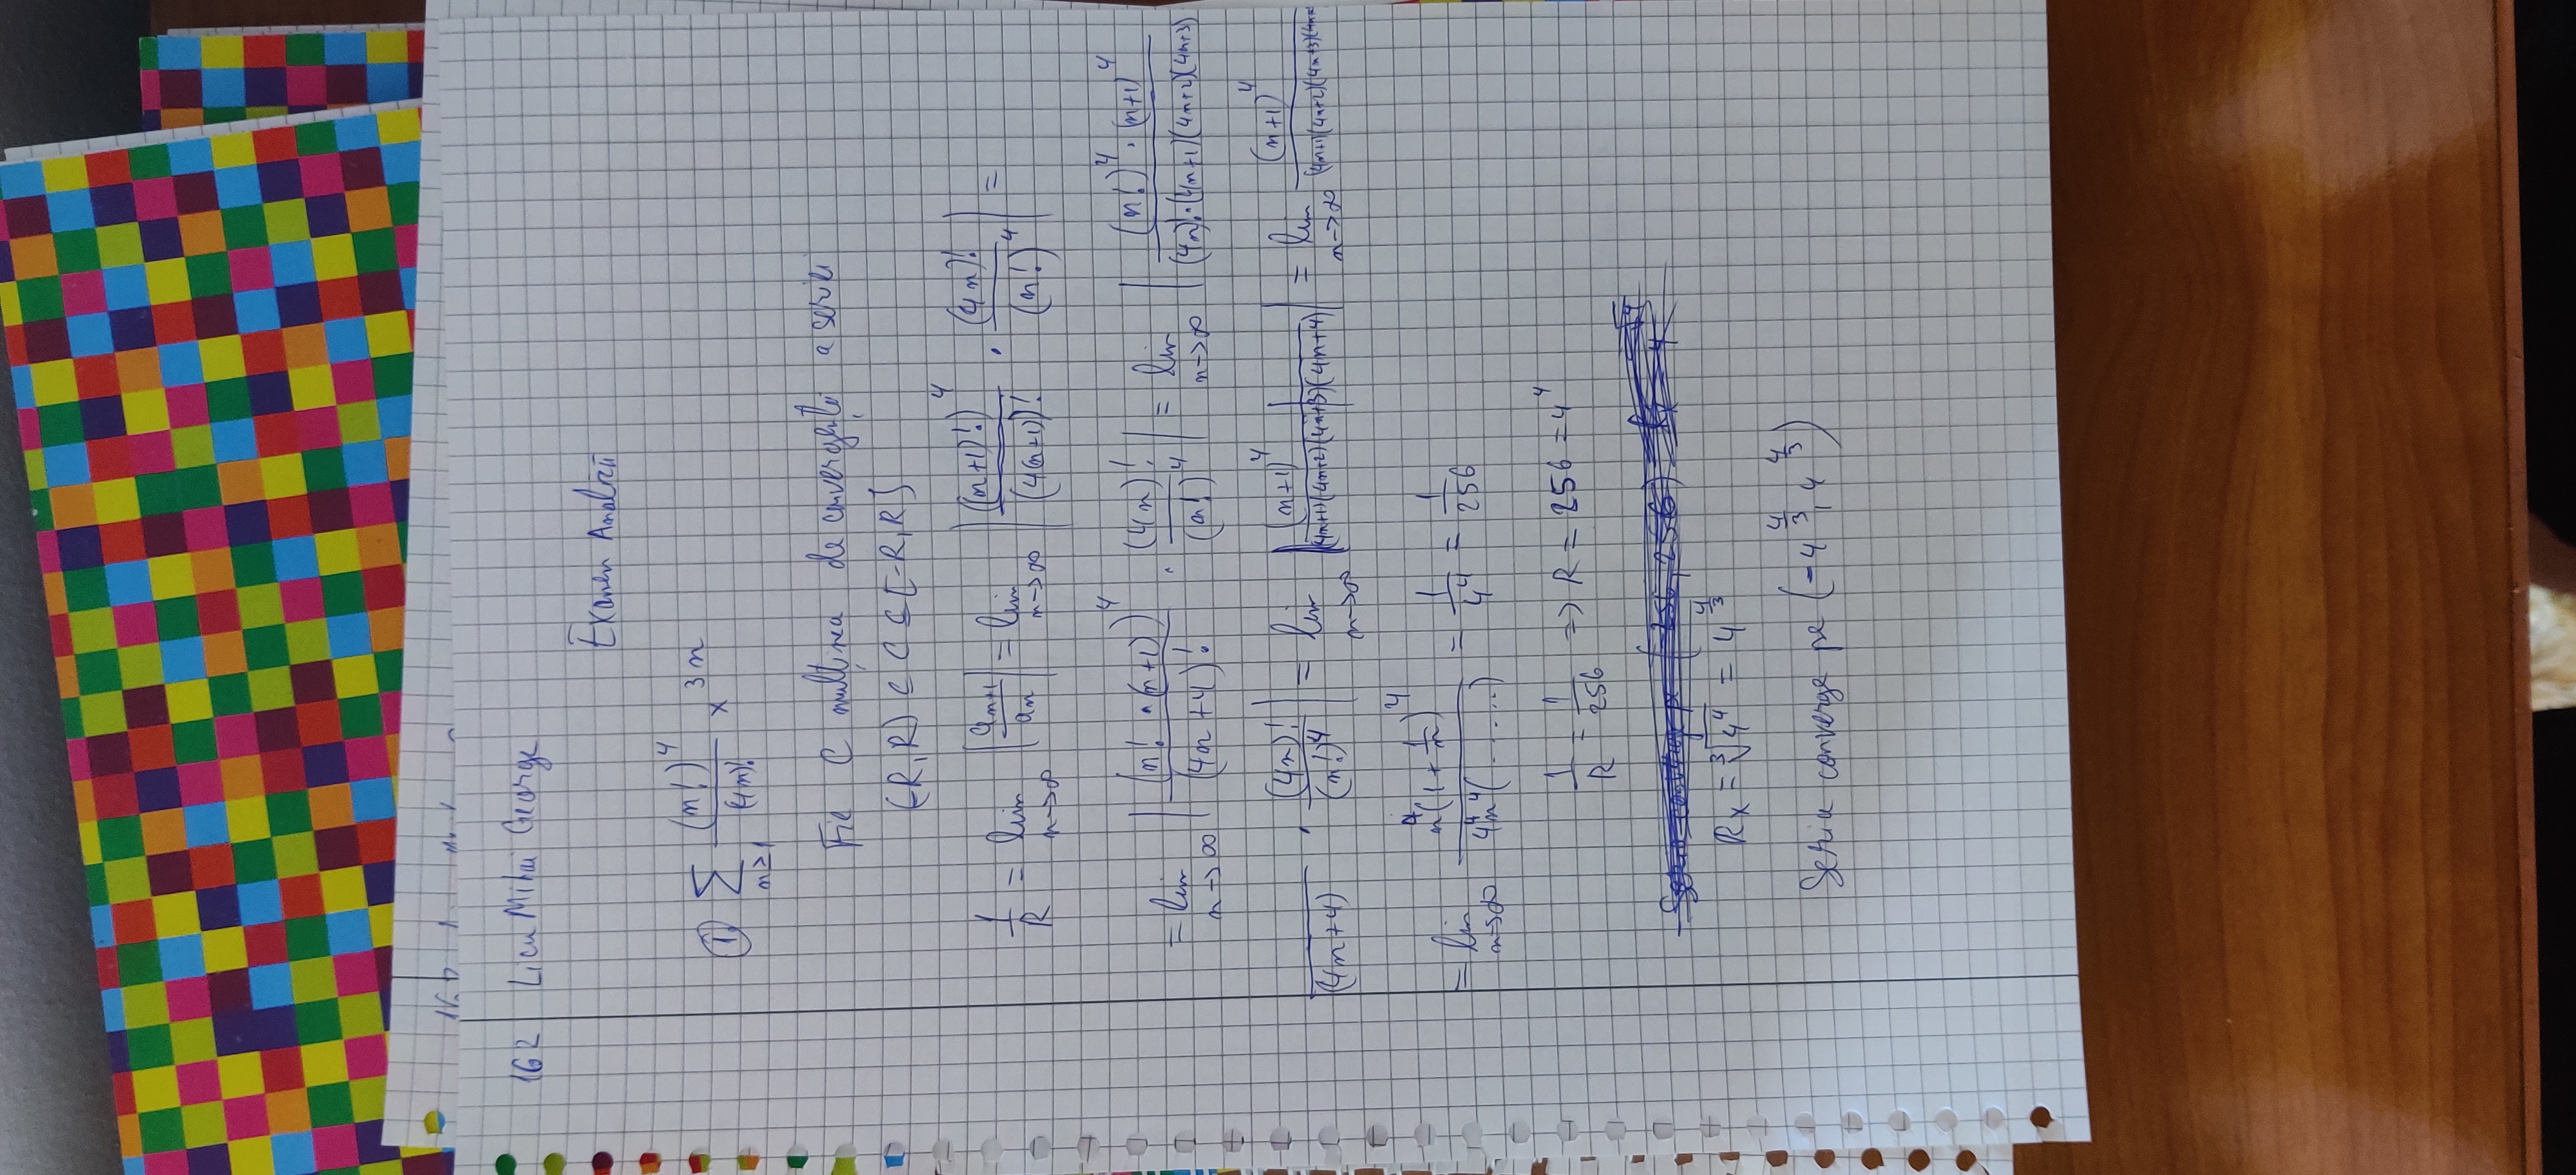 162 Licu Mihai George
Examen Analiză
① ∑_{n≥1} (n!)^4 / (4n)! x^{3n}
Fie C mulțimea de convergență a seriei
(-R, R) ⊆ C ⊆ [-R, R]
1/R = lim_{n→∞} |a_{n+1}/a_n| = lim_{n→∞} | ((n+1)!)^4 / (4(n+1))! · (4n)! / (n!)^4 | =
= lim_{n→∞} | (n! · (n+1))^4 / (4n+4)! · (4n)! / (n!)^4 | = lim_{n→∞} | (n!)^4 · (n+1)^4 / (4n)! · (4n+1)(4n+2)(4n+3)
/ (4n+4) · (4n)! / (n!)^4 | = lim_{n→∞} | (n+1)^4 / (4n+1)(4n+2)(4n+3)(4n+4) | = lim_{n→∞} (n+1)^4 / (4n+1)(4n+2)(4n+3)(4n+
= lim_{n→∞} n^4(1 + 1/n)^4 / 4^4 n^4 (.....) = 1/4^4 = 1/256
1/R = 1/256 => R = 256 = 4^4
R_x = ∛(4^4) = 4^{4/3}
Seria converge pe (-4^{4/3}, 4^{4/3})